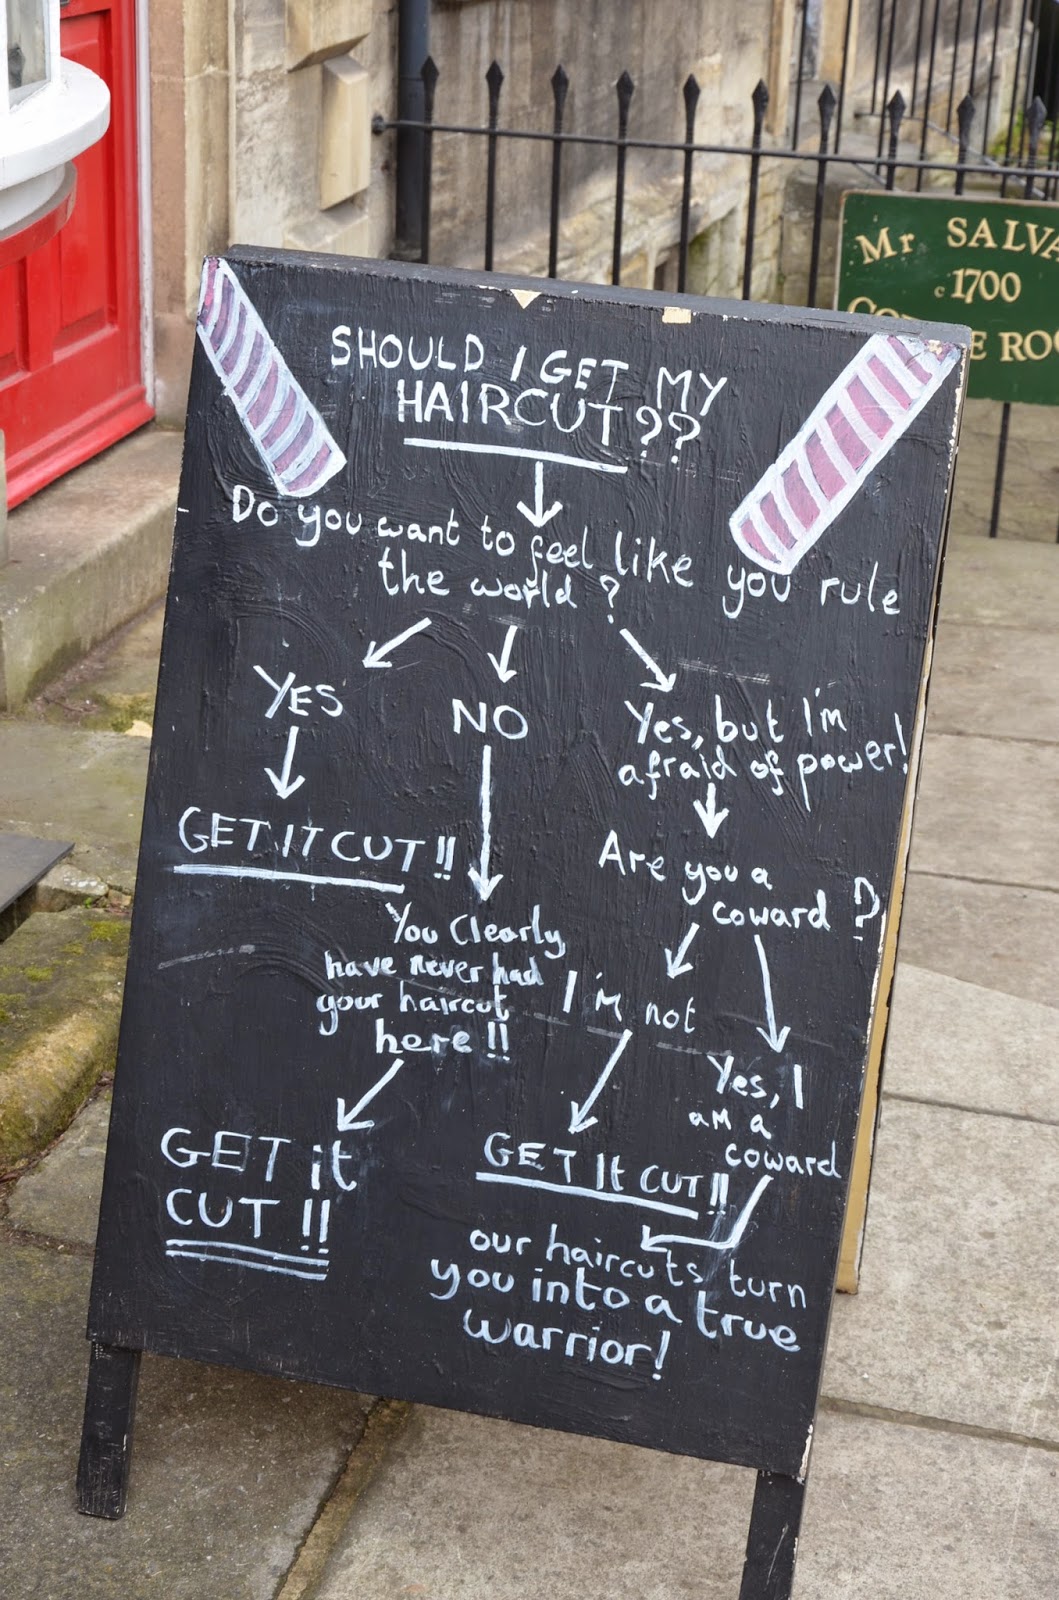 SHOULD I GET MY
HAIRCUT??
Do you want to feel like you rule
the world?
YES
NO
Yes, but I'm
afraid of power!
GET IT CUT!!
Are you a
coward?
You Clearly
have never had
your haircut
here!!
I'm not
Yes, I
am a
coward
GET it
CUT!!
GET It CUT!!
our haircuts turn
you into a true
warrior!
Mr SALVA
c 1700
E ROO